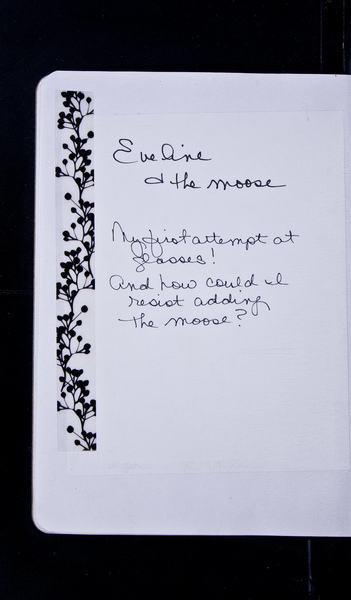 Eveline
& the moose
My first attempt at
glasses!
And how could I
resist adding
the moose?